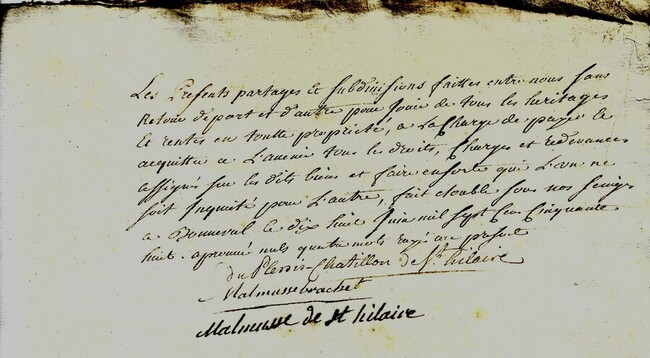 Les Presents partages Et Subdivisions faittes entre nous sans
Retour de part et d'autre pour Jouir de tous les heritages
Et rentes en toutte propriété, a La Charge de payer Et
acquitter a L'avenir tous les droits, Charges et redevances
assignés sur les dits biens et faire ensorte qui L'un ne
soit Inquiété pour L'autre, fait double sous nos seings
a Bonneval le dix huit Juin mil sept Cen Cinquante
huit. aprouvé nuls quatre mots rayé au present
du Plessis Chatillon de St. hilaire
Malmusse brachet
Malmusse de st hilaire